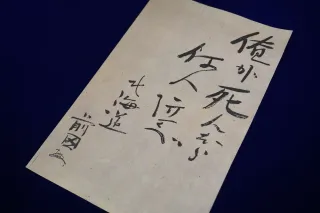 俺が死んだら
何人泣く
北海道
前田